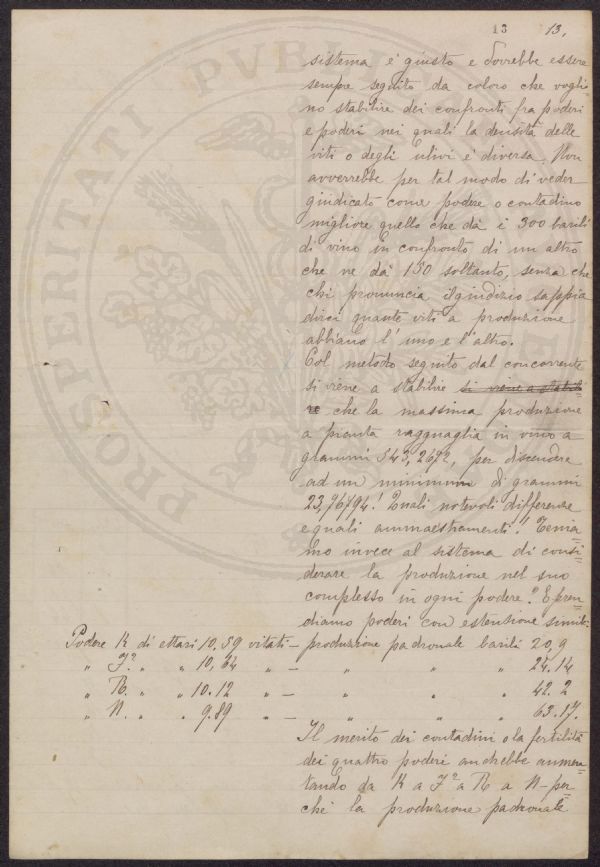 13 13,
sistema è giusto e dovrebbe essere
sempre seguito da coloro che voglio
no stabilire dei confronti fra poderi
e poderi nei quali la densità delle
viti o degli ulivi è diversa. Non
avverrebbe per tal modo di veder
giudicato come podere o contadino
migliore quello che dà i 300 barili
di vino in confronto di un altro
che ne dà 150 soltanto, senza che
chi pronuncia il giudizio sappia
dirci quante viti a produzione
abbiano l'uno e l'altro.
Col metodo seguito dal concorrente
si viene a stabilire si viene a stabili
re che la massima produzione
a pianta ragguaglia in vino a
grammi 543,2672, per discendere
ad un minimum di grammi
23,76794! Quali notevoli differenze
e quali ammaestramenti! Tenia=
mo invece al sistema di consi=
derare la produzione nel suo
complesso in ogni podere? E pren=
diamo poderi con estensione simili:
Podere K di ettari 10,59 vitati — produzione padronale barili 20,9
" J² " " 10,64 " — " " " 24.14
" R. " " 10.12 " — " " " 42.2
" N. " " 9.89 " — " " " 63.17.
Il merito dei contadini o la fertilità
dei quattro poderi andrebbe aumen=
tando da K a J² a R a N — per=
chè la produzione padronale
PROSPERITATI PVBLIC